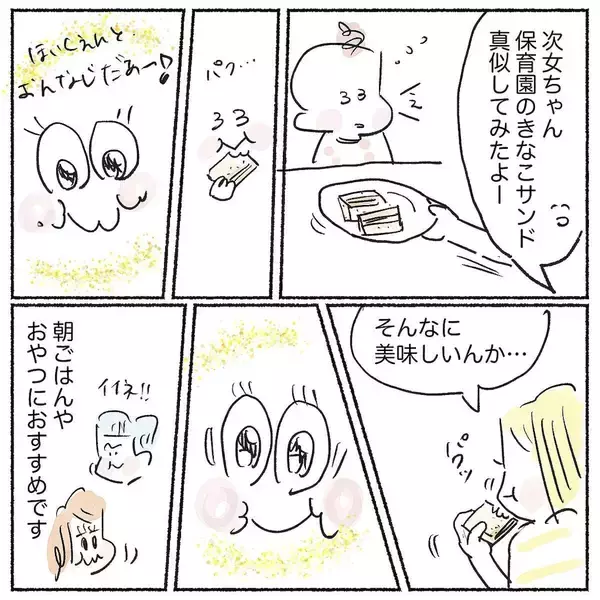 次女ちゃん
保育園のきなこサンド
真似してみたよー
パク…
ほいくえんと
おんなじだぁー♪
そんなに
美味しいんか…
パクッ
イイネ!!
朝ごはんや
おやつにおすすめです